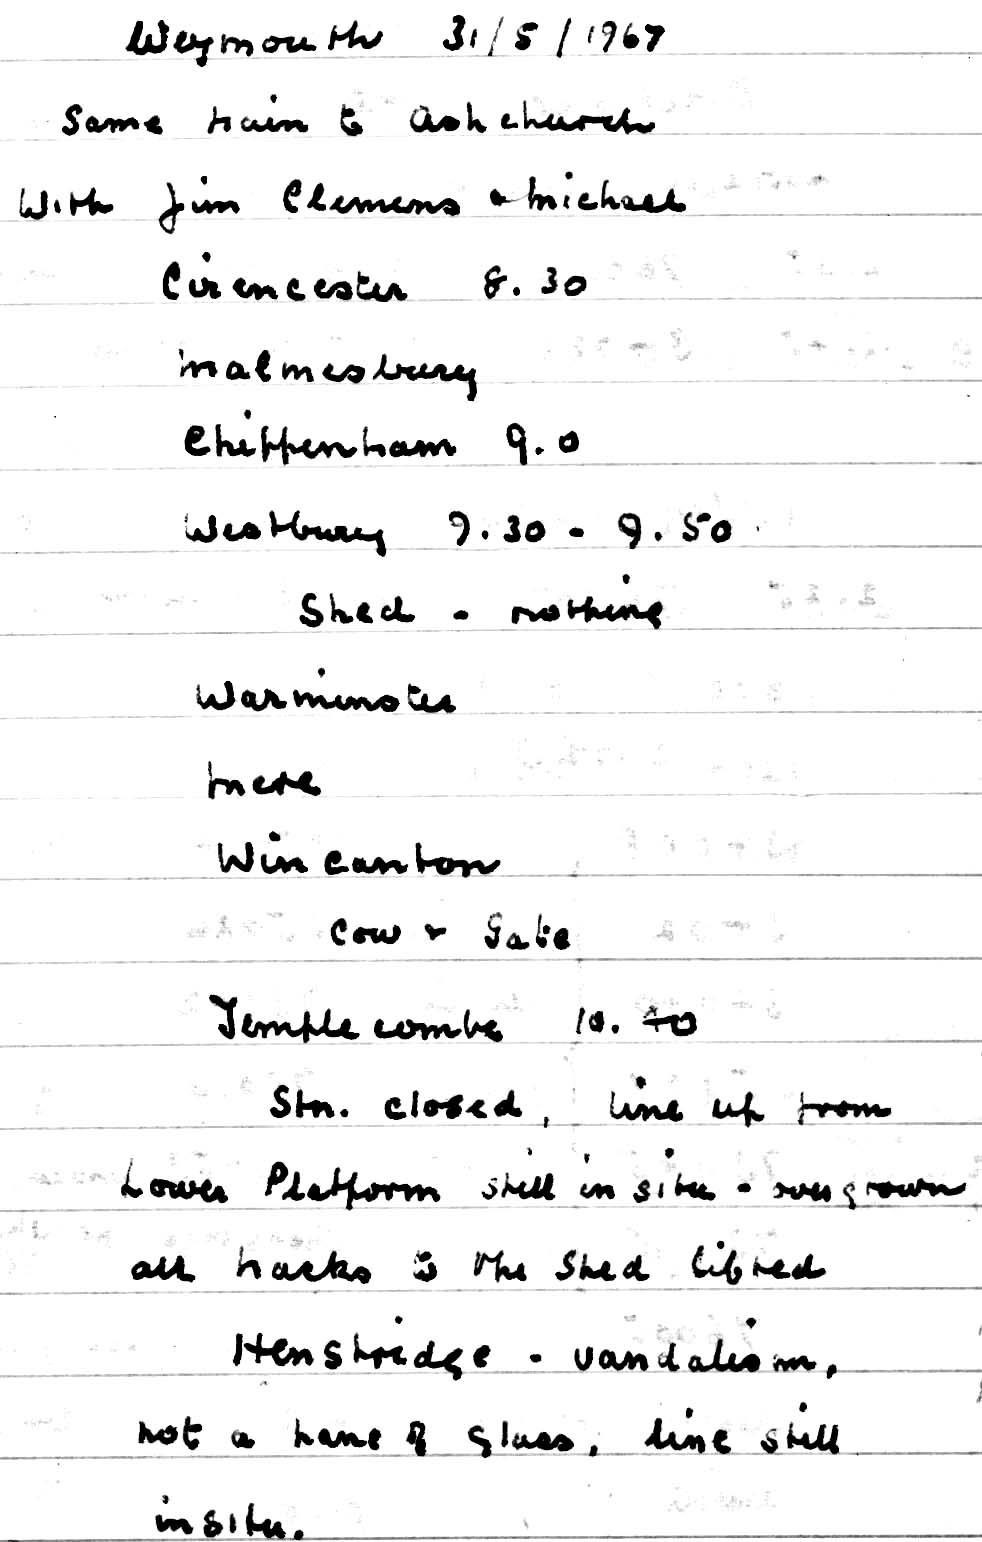 Weymouth 31/5/1967
Same train to Ashchurch
With Jim Clemens & Michael
Cirencester 8.30
Malmesbury
Chippenham 9.0
Westbury 9.30 - 9.50
Shed - nothing
Warminster
Mere
Wincanton
Cow & Gate
Templecombe 10.40
Stn. closed, line up from
Lower Platform still in situ - overgrown
all tracks to the shed lifted
Henstridge - vandalism,
not a pane of glass, line still
in situ.